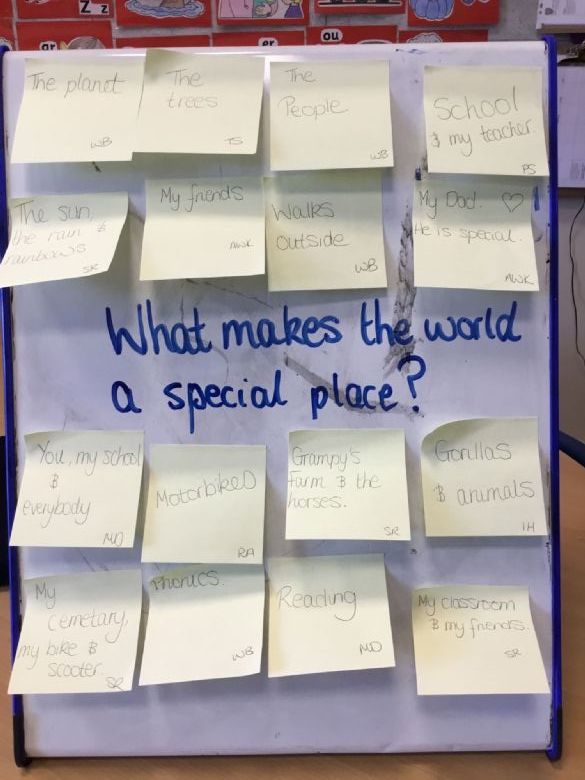 Z z
ar
er
ou
The planet
WB
The
trees
TS
The
People
WB
School
& my teacher.
PS
The sun,
the rain &
rainbows
SR
My friends
AWK
Walks
outside
WB
My Dad. ♡
He is special.
AWK
What makes the world
a special place?
You, my school
&
everybody
MD
Motorbikes
RA
Grampy's
Farm & the
horses.
SR
Gorillas
& animals
IH
My
cemetary,
my bike &
scooter.
SR
Phonics.
WB
Reading
MD
My classroom
& my friends.
SR